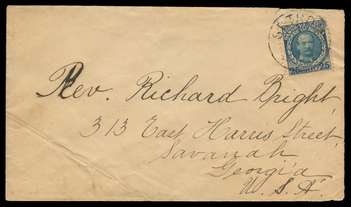 Rev. Richard Bright,
313 East Harris Street,
Savanah
Georgia
U. S. A.